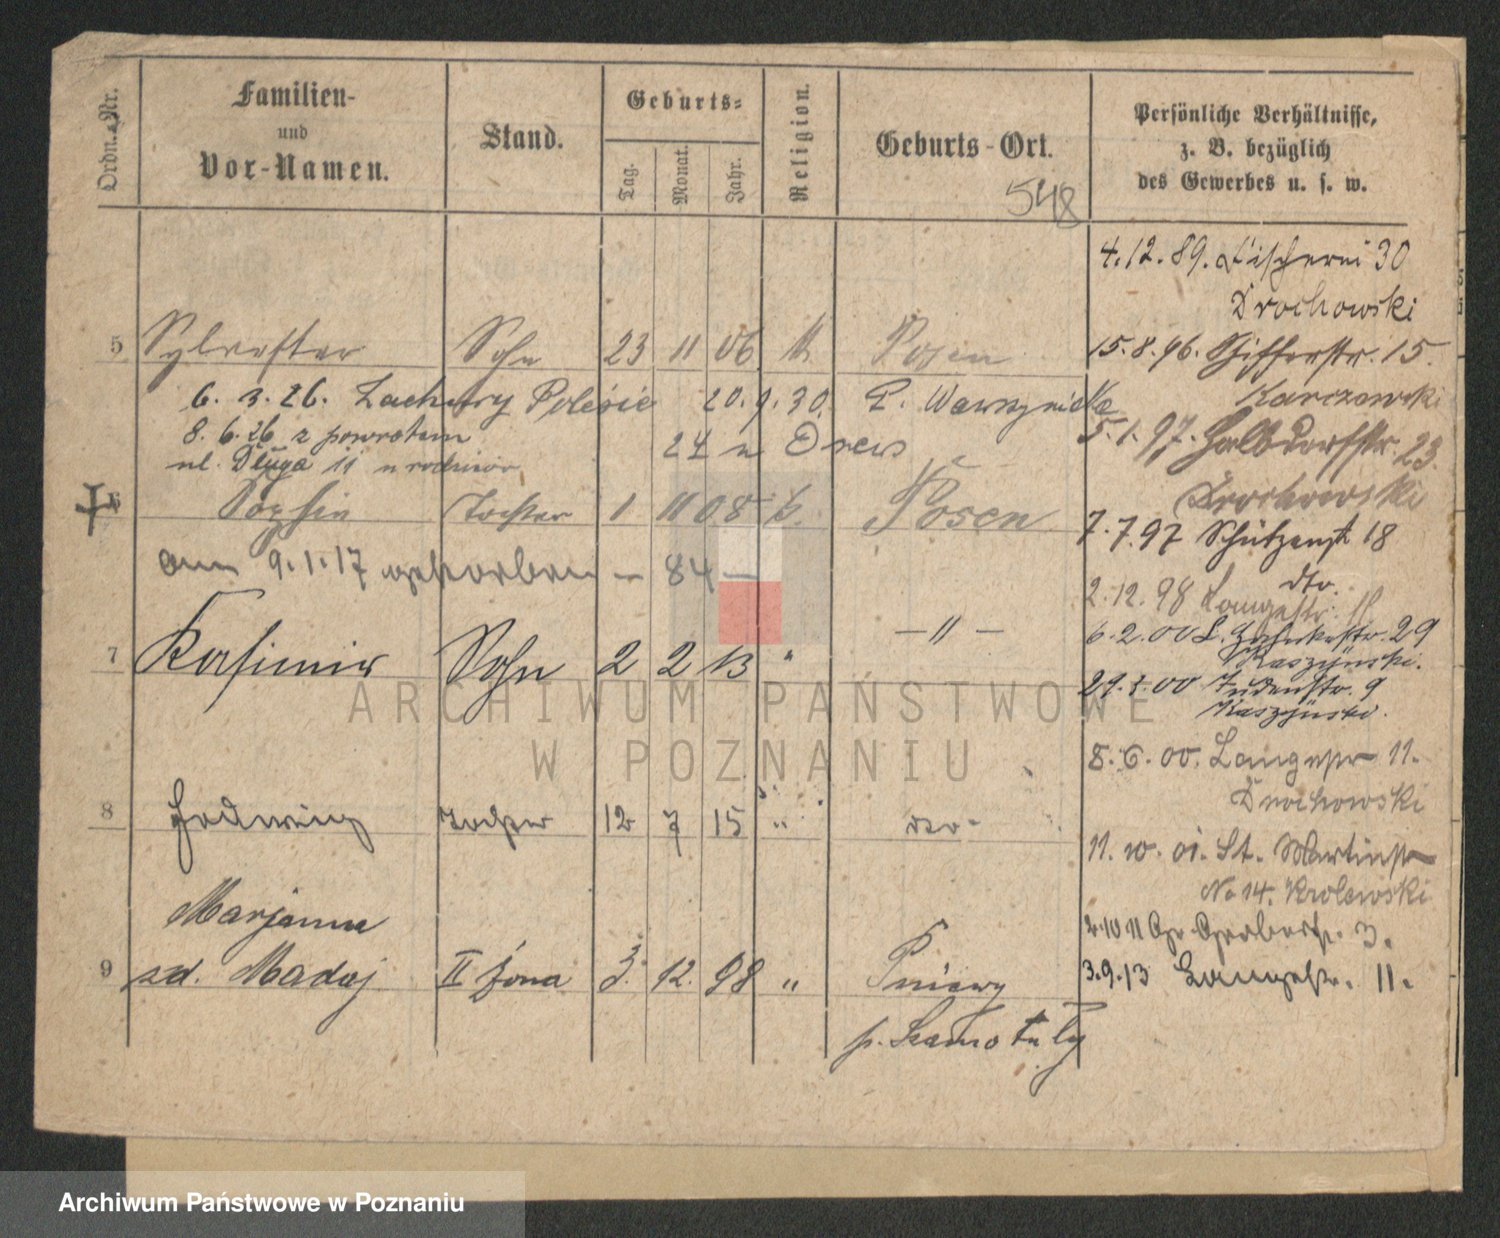 Ordn. Nr.
Familien-
und
Vor-Namen.
Stand.
Geburts-
Tag.
Monat.
Jahr.
Religion.
Geburts-Ort.
548
Persönliche Verhältnisse,
z. B. bezüglich
des Gewerbes u. s. w.
4.12.89. Fischerei 30
Drochowski
5 Sylvester Sohn 23 11 06 k Posen
15.8.96. Schifferstr. 15.
Karczewski
6. 3. 26. Zachury Polesie 20. 9. 30. Wawrzyniaka
8. 6. 26 z powrotem 24 u Drews
ul. Długa 11 u rodziców
5.1.97. Halbdorfstr. 23.
Drochowski
6 Sophia Tochter 1 11 08 k. Posen
7.7.97 Schützenstr 18
dto.
am 9.1.17 gestorben – 84 –
2.12.98 Langestr. 11
6.2.00 29
Kaszynski.
7 Kasimir Sohn 2 2 13 " – " –
29.3.00 Judenstr. 9
Kaszynski.
ARCHIWUM PAŃSTWOWE
W POZNANIU
8.6.00. Langestr 11.
Drochowski
8 Hedwig Tochter 12 7 15 " dto.
11. 10. 01. St. Martinstr
No 14. Krolewski
Marjanna
2.10 11 Gr Gerberstr. 3.
9 zd. Madaj II żona 3. 12. 98 " Pniewy
3.9.13 Langestr. 11.
p. Szamotuły
Archiwum Państwowe w Poznaniu